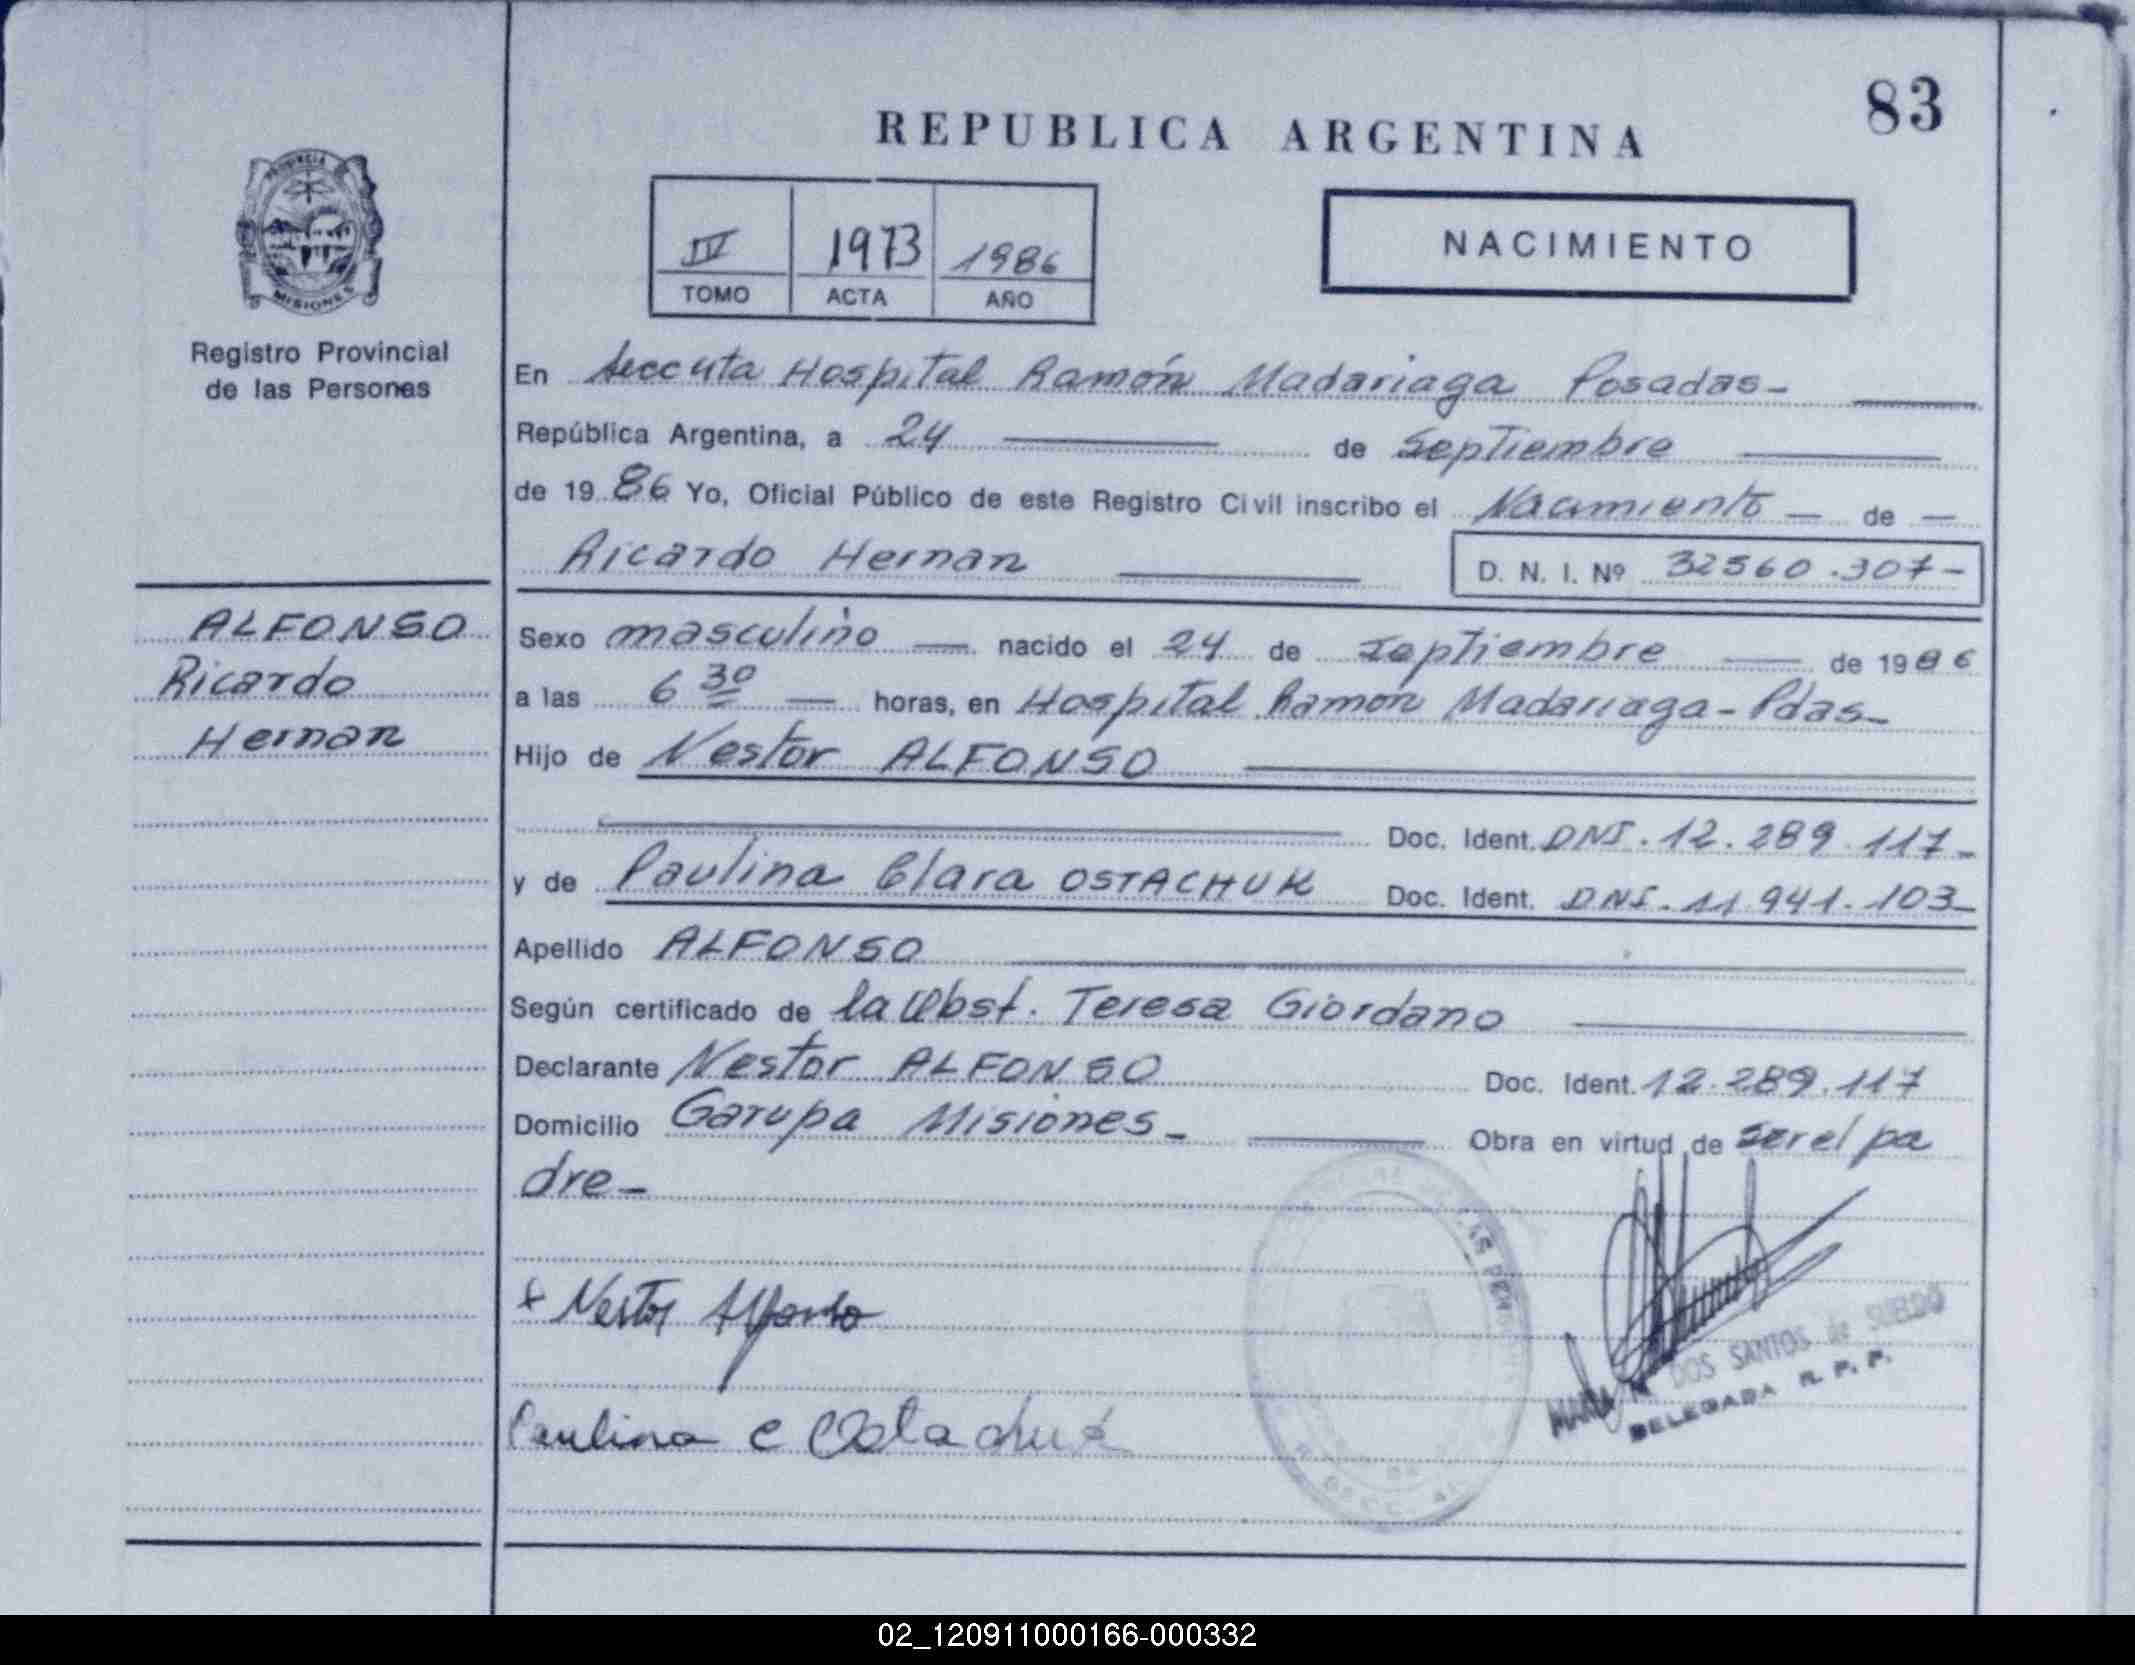 83
REPUBLICA ARGENTINA
PROVINCIA
MISIONES
Registro Provincial
de las Personas
IV 1973 1986
TOMO ACTA AÑO
NACIMIENTO
En Hospital Ramón Madariaga Posadas-
República Argentina, a 24 de Septiembre
de 1986 Yo, Oficial Público de este Registro Civil inscribo el Nacimiento - de -
Ricardo Hernan D. N. I. Nº 32560.307-
ALFONSO
Ricardo
Hernan
Sexo masculino nacido el 24 de Septiembre de 1986
a las 6 30 horas, en Hospital Ramón Madariaga - Pdas-
Hijo de Nestor ALFONSO
Doc. Ident. DNI. 12.289.117-
y de Paulina Clara OSTACHUK Doc. Ident. DNI. 11.941.103-
Apellido ALFONSO
Según certificado de la Obst. Teresa Giordano
Declarante Nestor ALFONSO Doc. Ident. 12.289.117
Domicilio Garupa Misiones- Obra en virtud de ser el pa
dre-
+ Nestor Alfonso
Paulina C Ostachuk
MARIA DOS SANTOS de SUELDO
DELEGADA R. P. P.
02_120911000166-000332